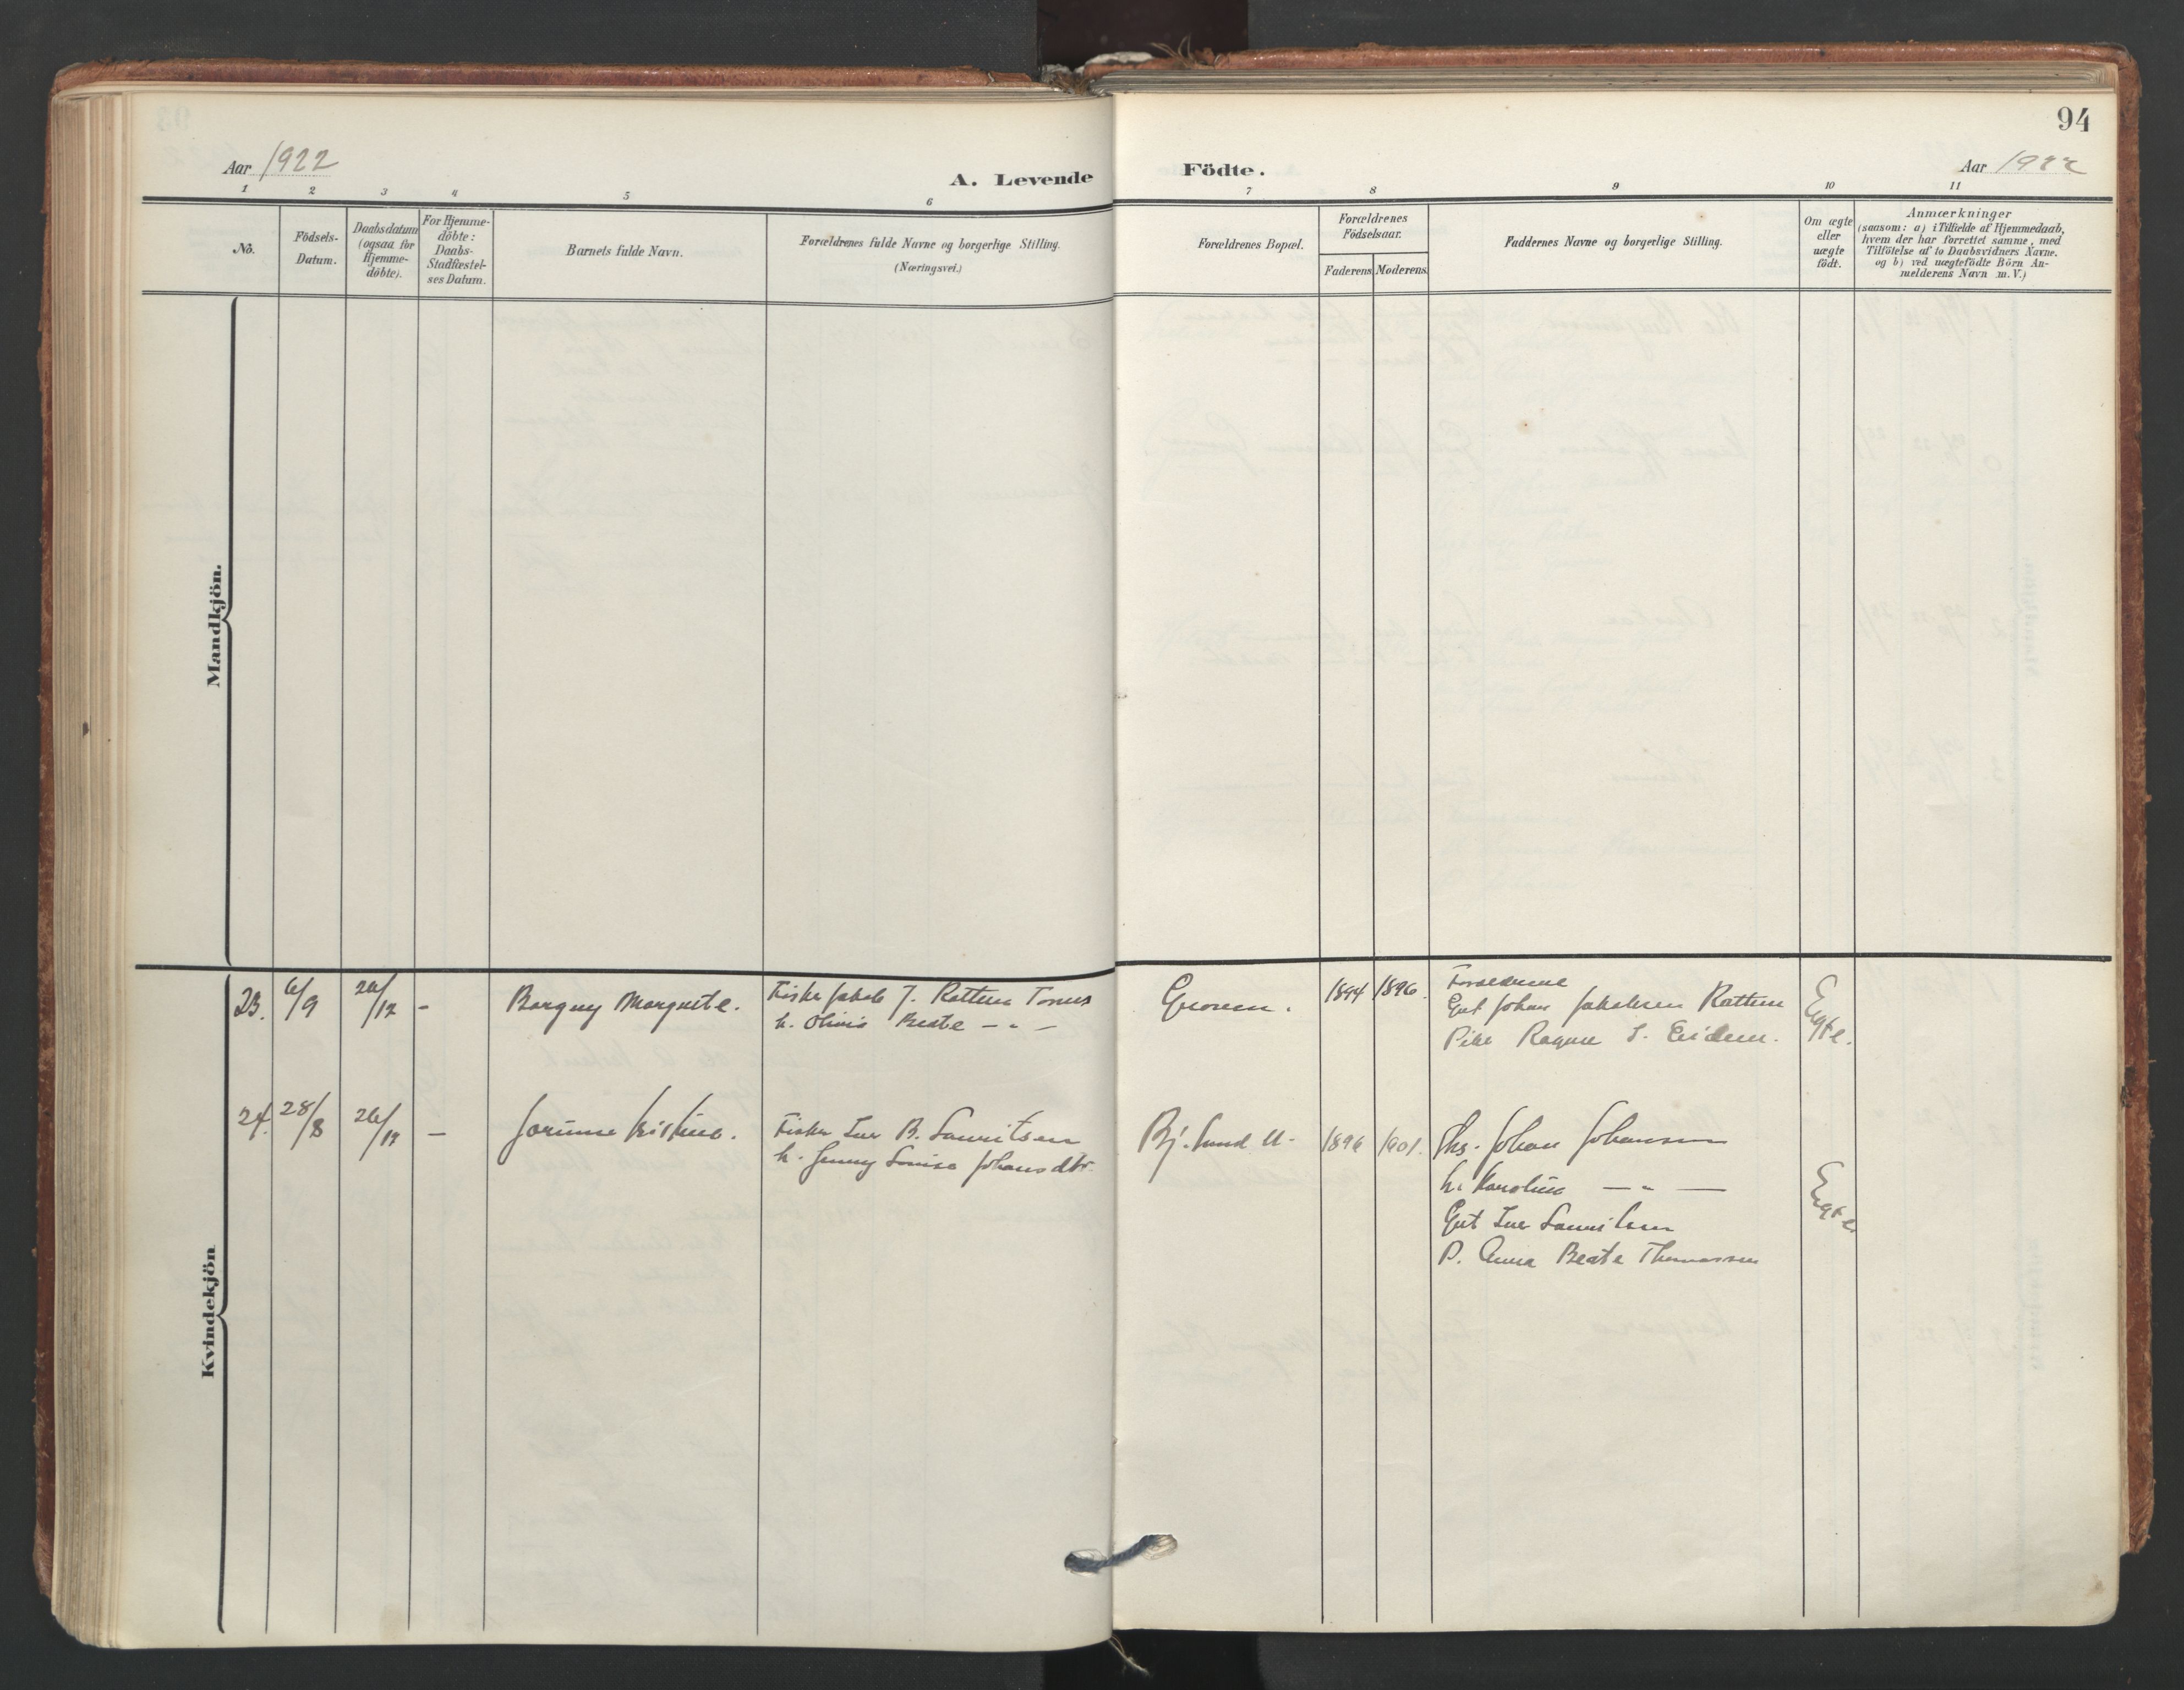 94
Aar 1922
A. Levende
Födte.
Aar 1922
1 2 3 4 5 6 7 8 9 10 11
No.
Födsels-
Datum.
Daabsdatum
(ogsaa for
Hjemme-
döbte).
For Hjemme-
döbte:
Daabs-
Stadfæstel-
ses Datum.
Barnets fulde Navn.
Forældrenes fulde Navne og borgerlige Stilling.
(Næringsvei.)
Forældrenes Bopæl.
Forældrenes
Födselsaar.
Faderens Moderens.
Faddernes Navne og borgerlige Stilling.
Om ægte
eller
uægte
födt.
Anmærkninger
(saasom: a) i Tilfælde af Hjemmedaab,
hvem der har forrettet samme, med
Tilföielse af to Daabsvidners Navne.
og b) ved uægtefödte Börn An-
melderens Navn m. V.)
Mandkjön.
Kvindekjön
23. 6/9 26/12 -
Borgny Margrete.
Fisker Jakob J. Ratten
h. Olivia Beate — " —
1894 1896.
Forældrene
Gut Johan Jakobsen Ratten
Pike Ragna J.
Egte.
24. 28/8 26/12 —
Jorunn Kristine.
Fisker Iver B. Lauritsen
h. Jenny Louise Johansdtr.
Bj. Sund
1896 1901.
Johan Johansen
h. Karoline — " —
Gut Iver Lauritsen
P. Anna Beate Thomassen
Egte